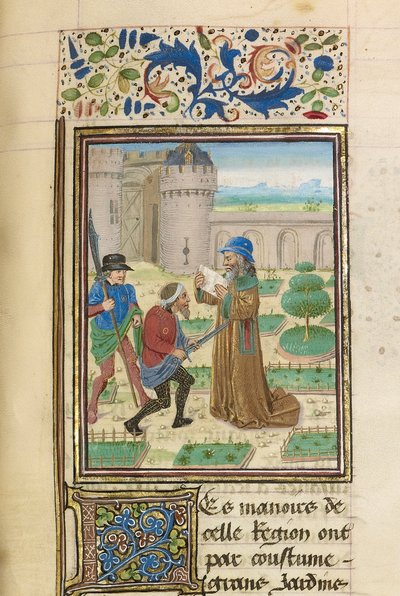 Les manoirs de
celle Region ont
par coustume
grans Jardins